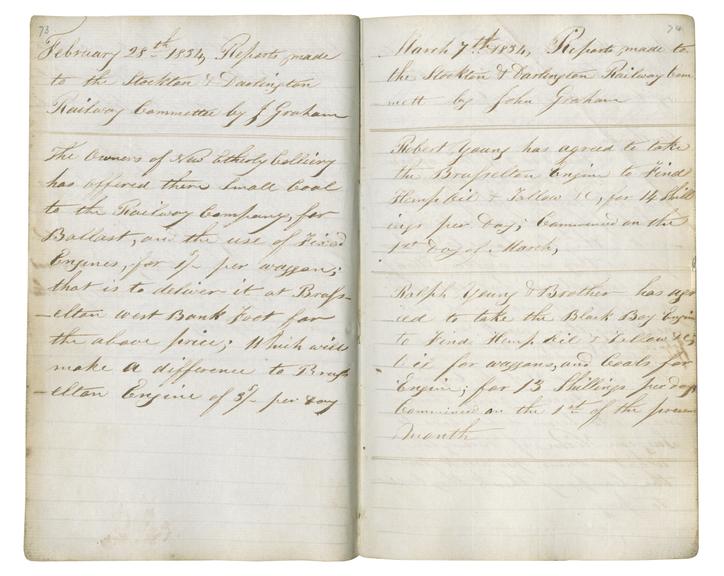 73
February 28th 1834, Reports, made
to the Stockton & Darlington
Railway Committee by J Graham
The Owners of New Etherly Colliery
has offered there Small Coal
to the Railway Company, for
Ballast, and the use of Fixed
Engines, for 1/- per waggon;
that is to deliver it at Brass-
-elton West Bank foot for
the above price; Which will
make a difference to Brass
-elton Engine of 3/- per day
74
March 7th 1834, Reports, made to
the Stockton & Darlington Railway Com
mett by John Graham
Robert Young has agreed to take
the Brasselton Engine to Find
Hemp &
Tallow &c, for 14 Shill
ings per Day; Commenced on the
1st Day of March,
Ralph Young & Brother has agr
eed to take the Black Boy Engine
to Find Hemp &
Tallow
for waggons, and Coals for
Engine; for 13 Shillings per day
Commenced on the 1st of the present
Month